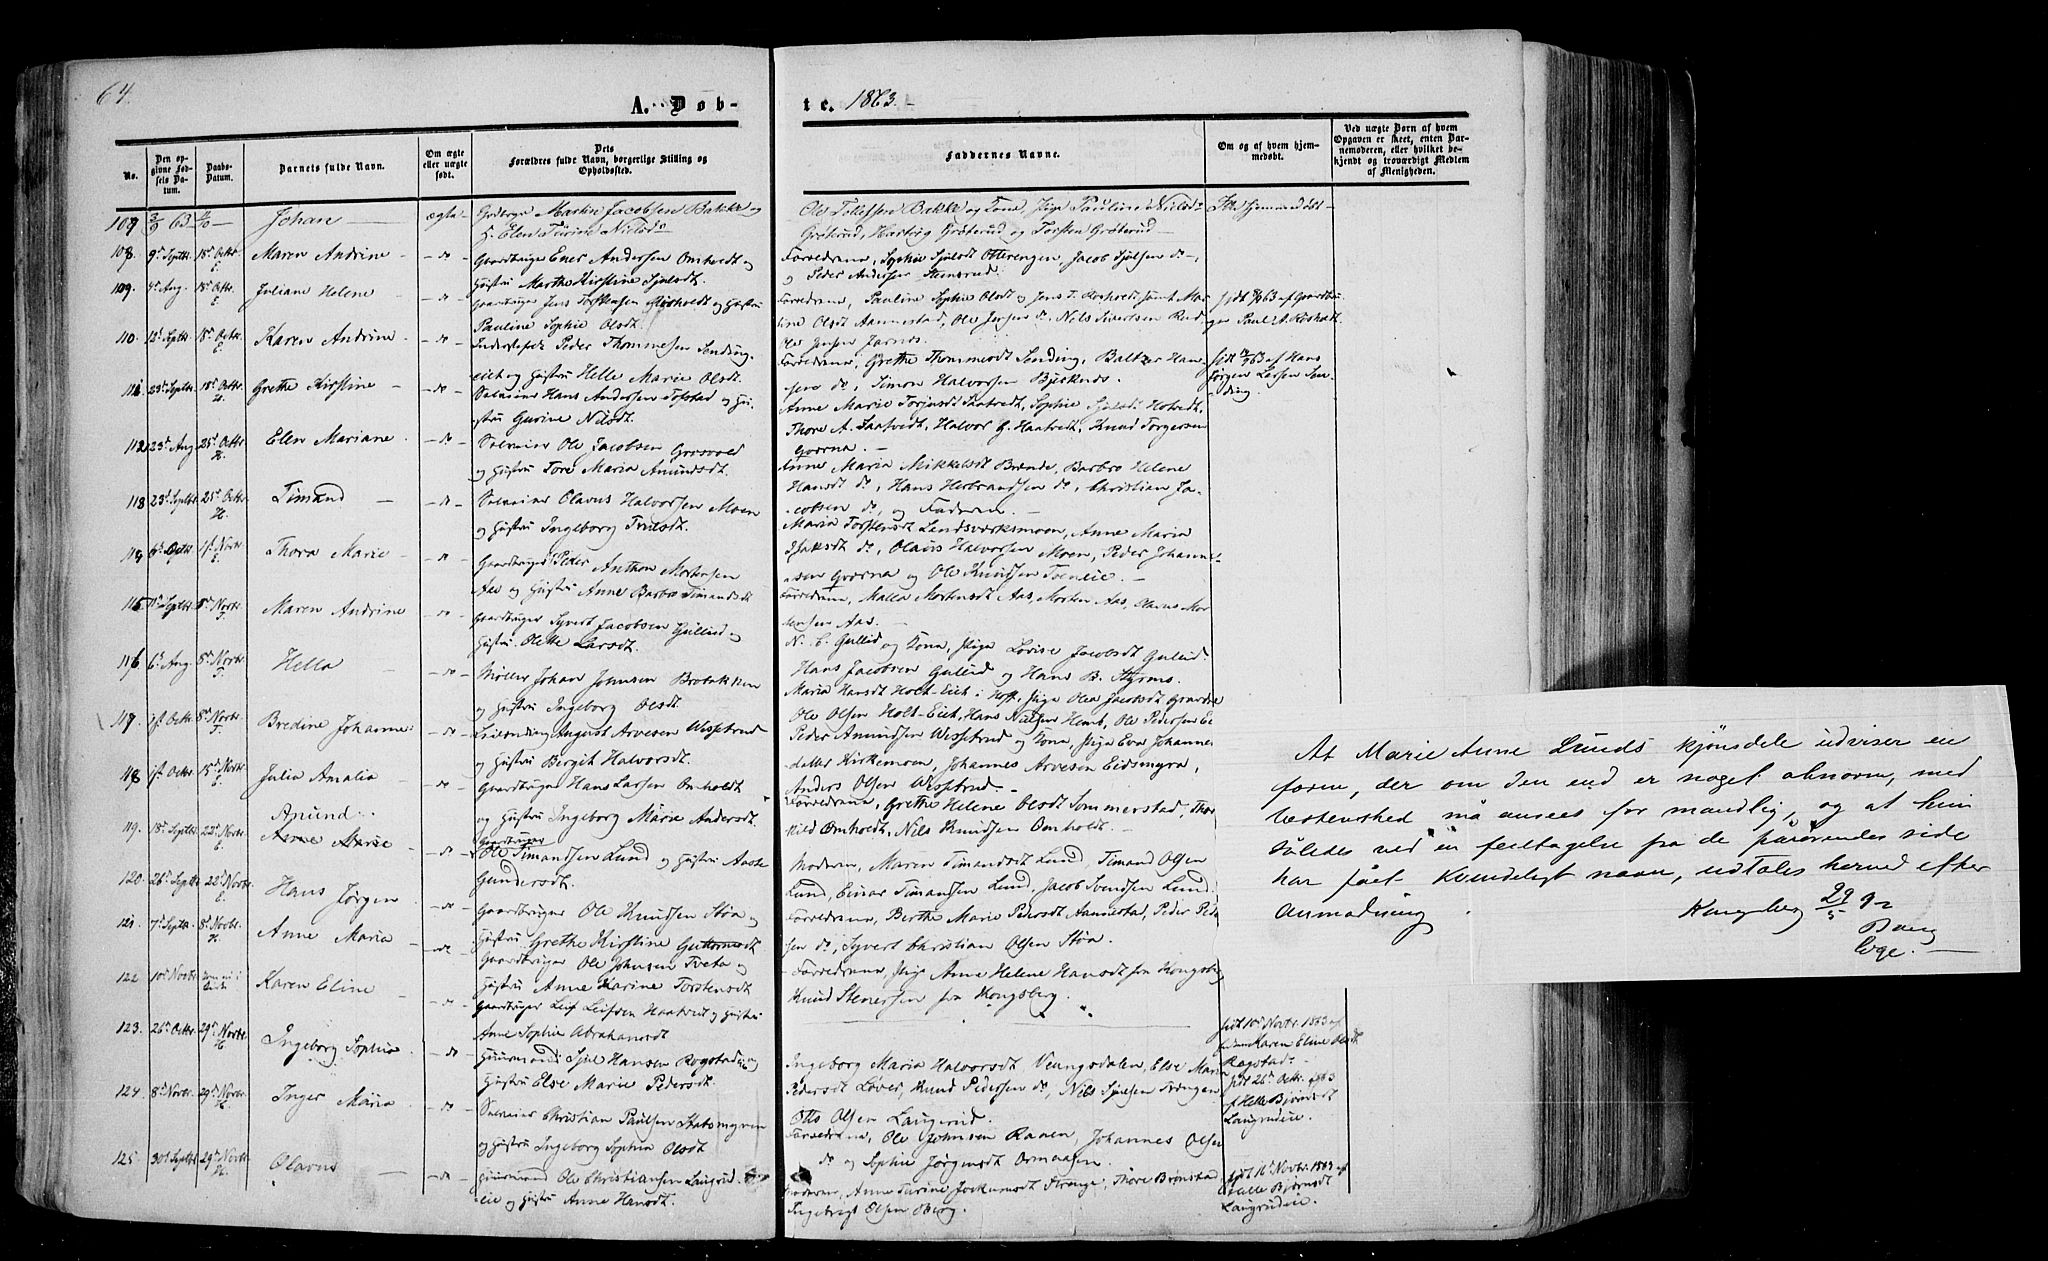 64.
A. Døb-
te. 1863.
No.
Den opgivne Fødsels Datum.
Daabs-Datum.
Barnets fulde Navn.
Om ægte eller uægte født.
Dets Forældres fulde Navn, borgerlige Stilling og Opholdssted.
Faddernes Navne.
Om og af hvem hjemmedøbt.
Ved uægte Børn af hvem Opgaven er skeet, enten Barnemoderen, eller hvilket bekjendt og troværdigt Medlem af Menigheden.
107 Johan ægte Martin Jacobsen Bakke og
H. Elen Nielsdt
Ole Tollefsen Bakke og Kone, Pige Pauline Nielsdt
Grøterud, Hartvig Grøterud og Torsten Grøterud
108. 9d Septbr. 18d Octbr. Maren Andrine - do - Gaardbruger Ener Andersen Omholdt og
Hustru Marthe Kirstine Sjulsdt.
Forældrene, Sophie Sjulsdt Otterengen, Jacob Sjulsen do,
og Peder Andersen Stensrud.
109. Aug. 18d Octbr. Juliane Helene - do - Gaardbruger Jens Roshold og Hustru
Pauline Sophie Olsdt.
Forældrene, Pauline Sophie Olsdt og Jens T. Rosholdt samt Mar-
tine Olsdt Aannestad, Ole Jensen do, Nels Sivertsen Rud,
Ole Jensen Jarnes.
110. 12d Septbr. 18d Octbr. Karen Andrine - do - Inderst Peder Thommesen Sending-
eiet og Hustru Helle Marie Olsdt.
Forældrene, Grethe Thommesdt Sending, Baltzer Han-
sen do, Simon Halvorsen Bjerknes.
Hans Jørgen Larsen Sending
111. 23d Septbr. 18d Octbr. Grethe Kirstine - do - Selveier Hans Andersen Tofstad og Hu-
stru Gurine Nilsdt.
Anne Marie Torjusdt Saatvedt, Sophie Hotvedt,
Thore A. Saatvedt, Halvor G. Haatvedt, Knud Torgersen
Gvarna.
112. 23d Aug. 25d Octbr. Elen Mariane - do - Selveier Ole Jacobsen Grosvold
og Hustru Tore Maria Amundsdt.
Anne Maria Mikkelsdt Brænde, Barbro Helene
Hansdt do, Hans Herbrandsen do, Christian Ja-
cobsen do, og Faderen.
113 23d Septbr. 25d Octbr. Timand - do - Selveier Olavus Halvorsen Moen
og Hustru Ingeborg Trulsdt.
Maria Torstensdt Landsverksmoen, Anne Maria
Isaksdt do, Olaus Halvorsen Moen, Peder Johanne-
sen Gvarna og Ole Knudsen Toeneie.
114 6d Octbr. 1st Novbr. Thora Marie - do - Gaardbruger Peder Anthon Mortensen
Aas og Hustru Anne Barbro Timandsdt
Forældrene, Malla Mortensdt Aas, Morten Aas, Olavus Mor-
tensen Aas.
115 Septbr. 8d Novbr. Maren Andrine - do - Gaardbruger Syvert Jacobsen Gullid og
Hustru Olette Larsdt.
N. C. Gullid og Kone, Pige Lovise Jacobsdt Gullid.
Hans Jacobsen Gulid og Hans B. Styrmo.
116 6d Aug. 8d Novbr. Hella - do - Møller Johan Johnsen Brobakken
og Hustru Ingeborg Olsdt.
Maria Hansdt Holt-Eiet i Hoff, Pige Olea Jacobsdt
Ole Olsen Holt-Eiet, Hans Nielsen Hemb, Ole Pedersen
117. 1st Octbr. 8d Novbr. Bredine Johanne - do - August Arvesen Wissetrud
og Hustru Birgit Halvorsdt.
Peder Amundsen Wissetrud og Kone, Pige Eva Johannes-
datter Kirkemoen, Johannes Arvesen Eidsmyra,
Anders Olsen Wissetrud.
118 1st Octbr. 15d Novbr. Julia Amalia - do - Gaardbruger Hans Larsen Omholdt
og Hustru Ingeborg Marie Andersdt.
Forældrene, Grethe Helene Olsdt Sommerstad, Thor-
kild Omholdt, Nils Knudsen Omholdt.
119. 18d Septbr. 22d Novbr. Anund. Anne Marie - do - Gaardbruger
Ole Timandsen Lund og Hustru Aaste
Gundersdt.
Moderen, Maren Timandsdt Lund, Timand Olsen
Lund, Einar Timandsen Lund, Jacob Svendsen Lund.
120. 26d Septbr. 22d Novbr. Hans Jørgen - do - Gaardbruger Ole Knudsen Støa og
Hustru Grethe Kirstine Guttormsdt
Forældrene, Berthe Marie Pedersdt Aannestad, Peder Peder-
sen do, Syvert Christian Olsen Støa.
121. 7d Septbr. 8d Novbr. Anne Maria - do - Gaardbruger Ole Johnsen Tveta og
Hustru Anne Karine Torstensdt
Forældrene, Pige Anne Helene Hansdt fra Kongsberg
Knud Stenersen fra Kongsberg.
122 10d Novbr. Karen Eline - do - Gaardbruger Leif Leifsen Haatvedt og Hustru
Anne Sophie Abrahamsdt
født 10d Novbr. 1863 af
Karen Eline Olsdt
Rogstad.
123. 26d Octbr. 29d Novbr. Ingeborg Sophia - do - Huusmand Sjul Hansen Rogstadeie og
Hustru Else Marie Pedersdt.
Ingeborg Maria Halvorsdt Veungsdalen, Else Maria
Pedersdt Løver, Knud Pedersen do, Nils Sjulsen
Otto Olsen Laugerud.
født 26d Octbr. 1863
af Helle Bjørnsdt
Laugrudeie.
124. 8d Novbr. 29d Novbr. Inger Maria - do - Selveier Christian Paulsen Stabsmyren
og Hustru Ingeborg Sophia Olsdt
Forældrene, Ole Johnsen Raaen, Johannes Olsen
do og Sophie Jørgensdt Ormaasen.
125. 30d Septbr. 29d Novbr. Olavus - do - Huusmand Ole Christiansen Laugrud-
eie og Hustru Anne Hansdt.
Moderen, Anne Turine Jockumsdt Strange, Thore Brønstad
Ingebrigt Olsen Oberg.
født 16d Novbr. 1863 af
Helle Bjørnsdt
Laugrudeie.
At Marie Anne Lunds kjønsdele udviser en
form, der om den end er noget abnorm, med
bestemthed må ansees for mandlig, og at hun
således ved en feiltagelse fra de pårørendes side
har fået kvindeligt navn, udtales herved efter
anmodning.
Kongsberg 29/5 92
Bang
læge.